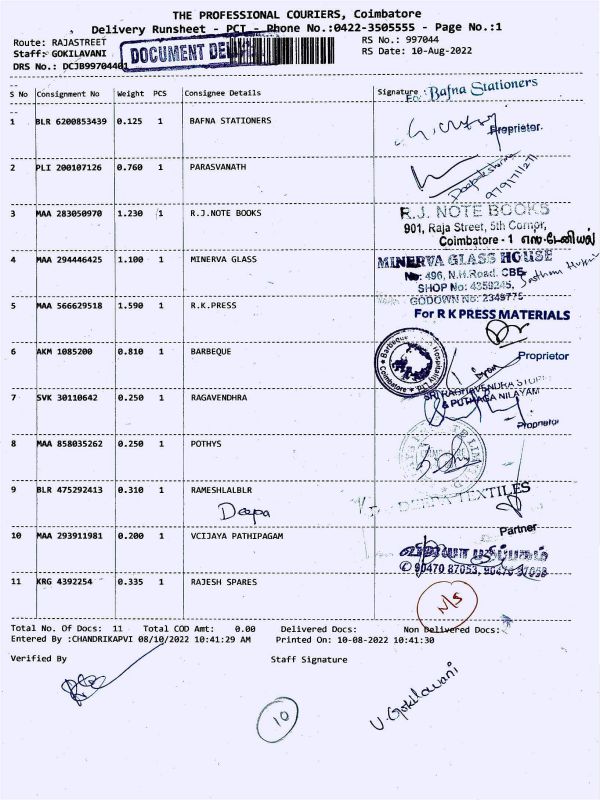 THE PROFESSIONAL COURIERS, Coimbatore
Delivery Runsheet - PCT - Phone No.:0422-3505555 - Page No.:1
Route: RAJASTREET RS No.: 997044
Staff: GOKILAVANI RS Date: 10-Aug-2022
DOCUMENT
DRS No.: DCJB99704401
S No Consignment No Weight PCS Consignee Details Signature
For Bafna Stationers
1 BLR 6200853439 0.125 1 BAFNA STATIONERS
Proprietor.
2 PLI 200107126 0.760 1 PARASVANATH
9791711271
3 MAA 283050970 1.230 1 R.J.NOTE BOOKS R.J. NOTE BOOKS
901, Raja Street, 5th Corner,
Coimbatore - 1
4 MAA 294446425 1.100 1 MINERVA GLASS MINERVA GLASS HOUSE
No: 496, N.H.Road. CBE
SHOP No: 4359245,
GODOWN No: 2349775
5 MAA 566629518 1.590 1 R.K.PRESS For R K PRESS MATERIALS
6 AKM 1085200 0.810 1 BARBEQUE
Proprietor
7 SVK 30110642 0.250 1 RAGAVENDHRA SRI RAGHAVENDRA STORE
& PUTHAGA NILAYAM
Proprietor
8 MAA 858035262 0.250 1 POTHYS
9 BLR 475292413 0.310 1 RAMESHLALBLR DEEPA TEXTILES
Deepa
Partner
10 MAA 293911981 0.200 1 VCIJAYA PATHIPAGAM
90470 87053, 90470 87058
11 KRG 4392254 0.335 1 RAJESH SPARES
N/S
Total No. Of Docs: 11 Total COD Amt: 0.00 Delivered Docs: Non Delivered Docs:
Entered By :CHANDRIKAPVI 08/10/2022 10:41:29 AM Printed On: 10-08-2022 10:41:30
Verified By Staff Signature
10
V. Gokilavani